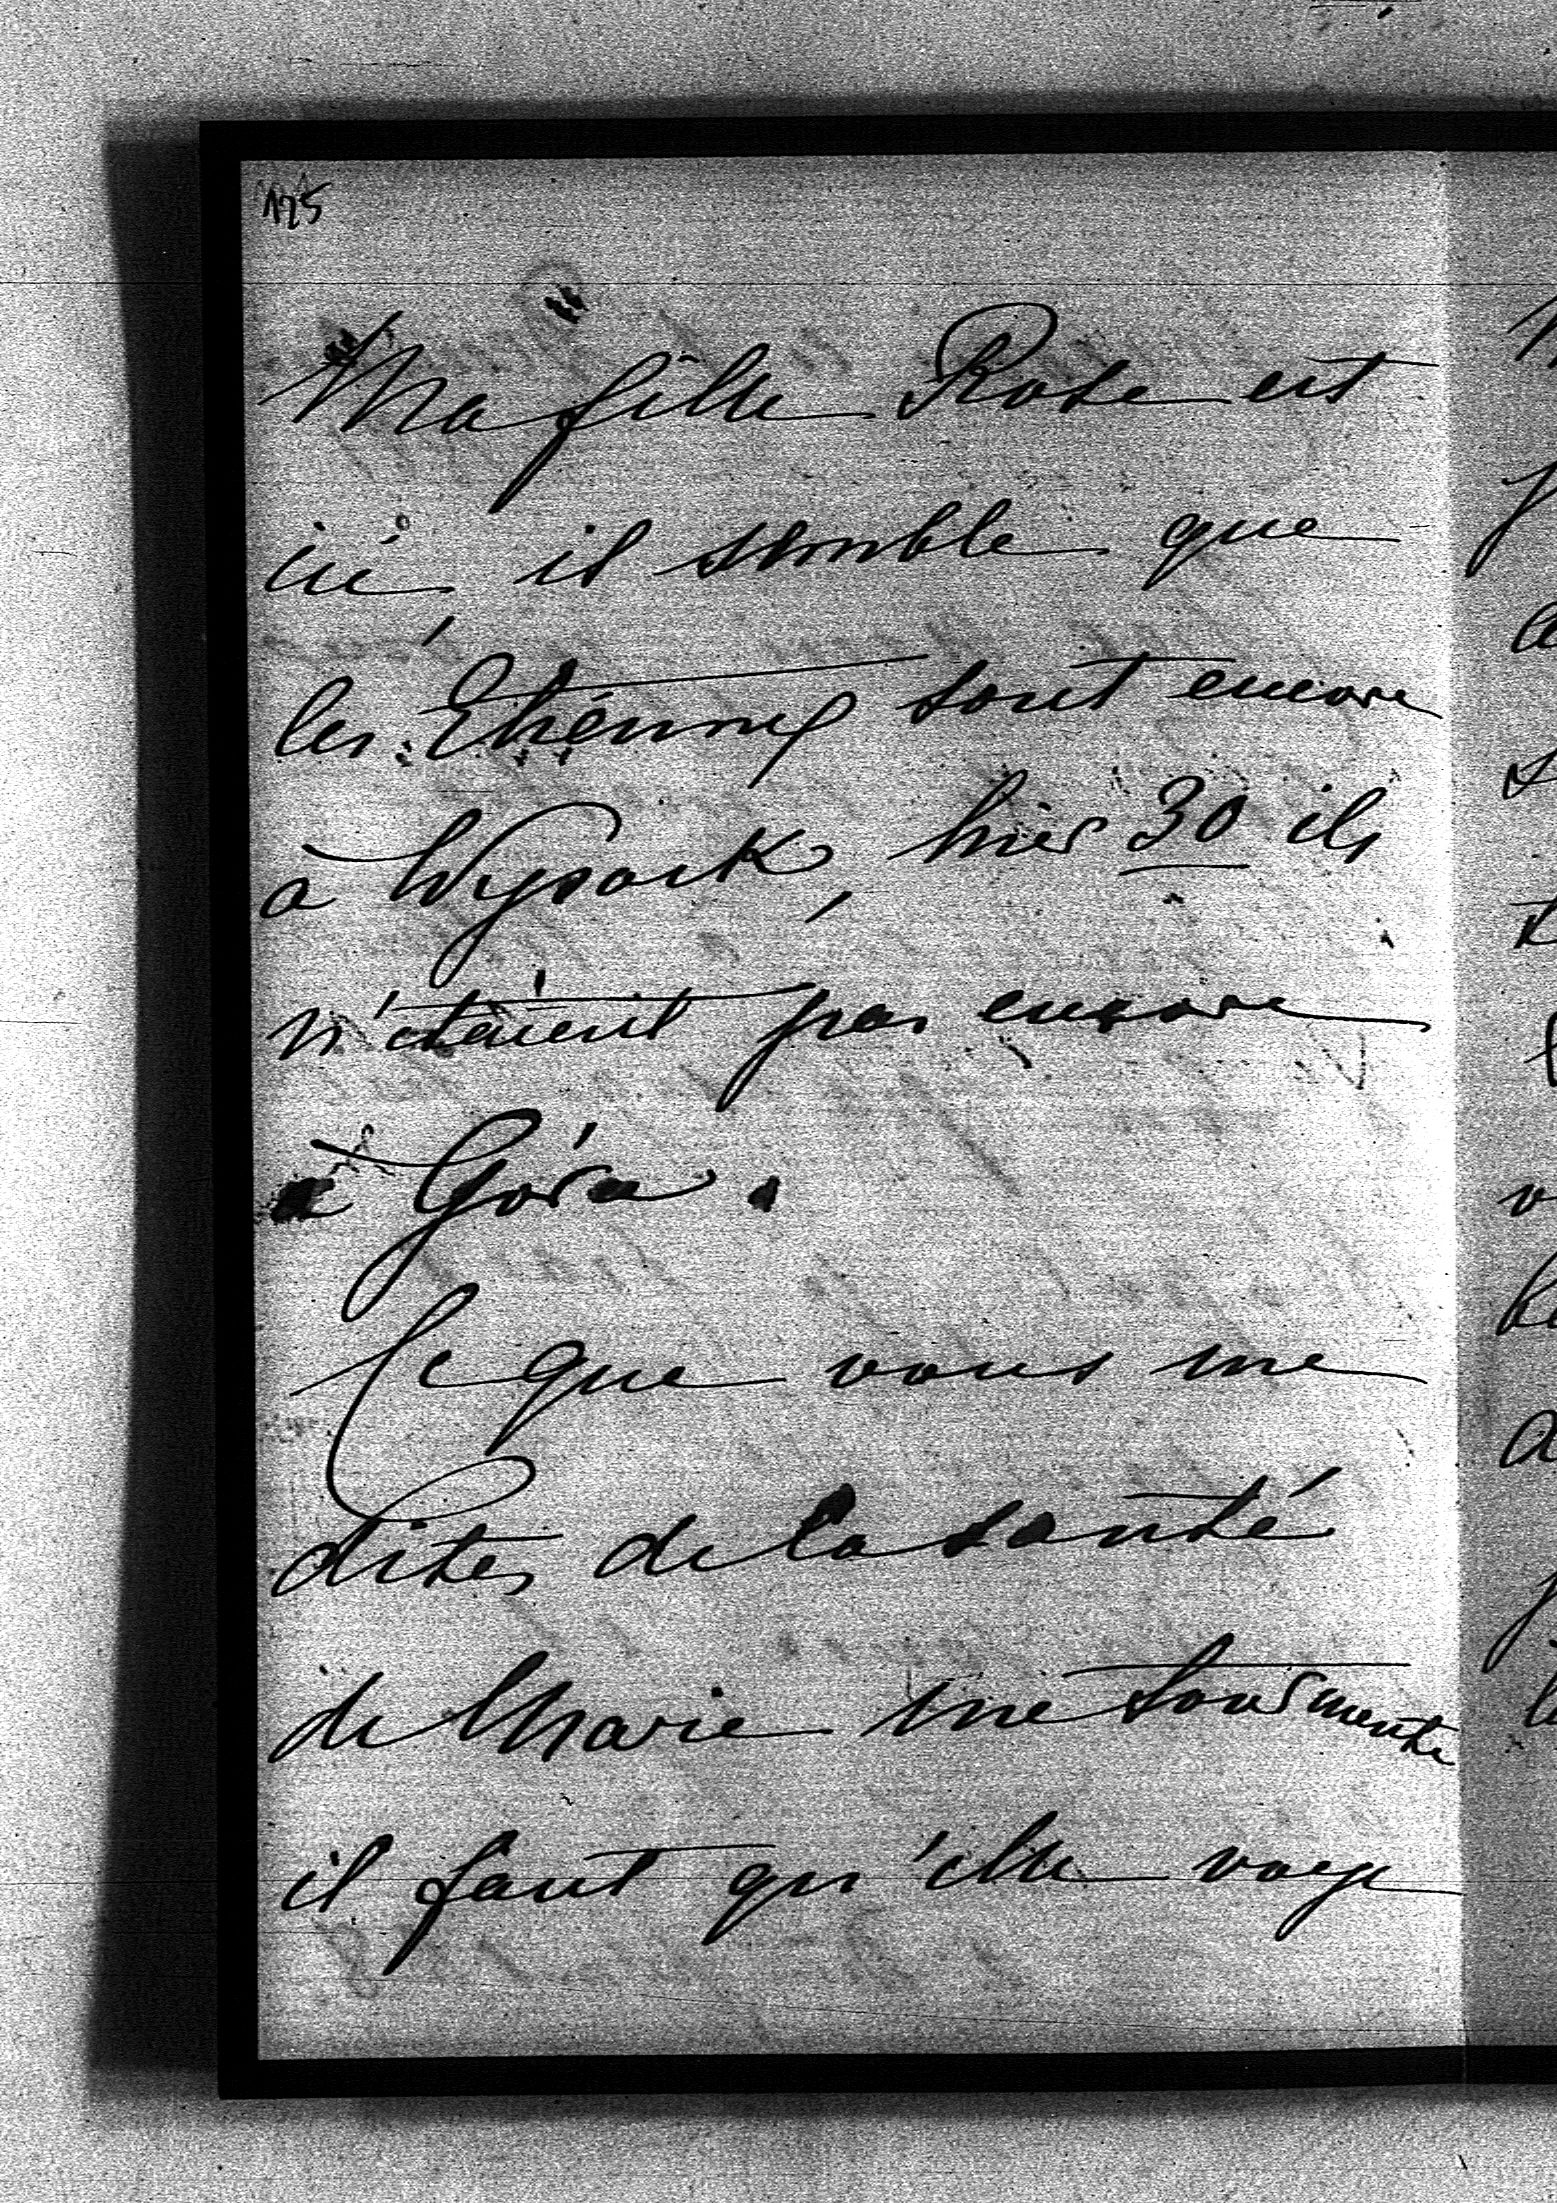 125
Ma fille Rose est
ici, il semble que
les Etiennes sont encore
à Wysock, hier 30 ils
n'étaient pas encore
à Góra.
Ce que vous me
dites de la santé
de Marie me tourmente
il faut qu'elle voye